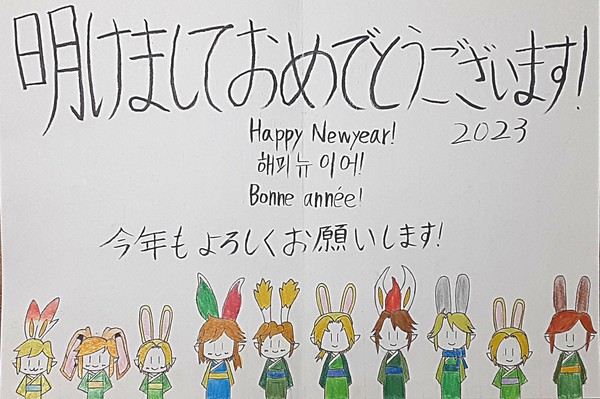 明けましておめでとうございます!
2023
Happy Newyear!
해피 뉴 이어!
Bonne année!
今年もよろしくお願いします!